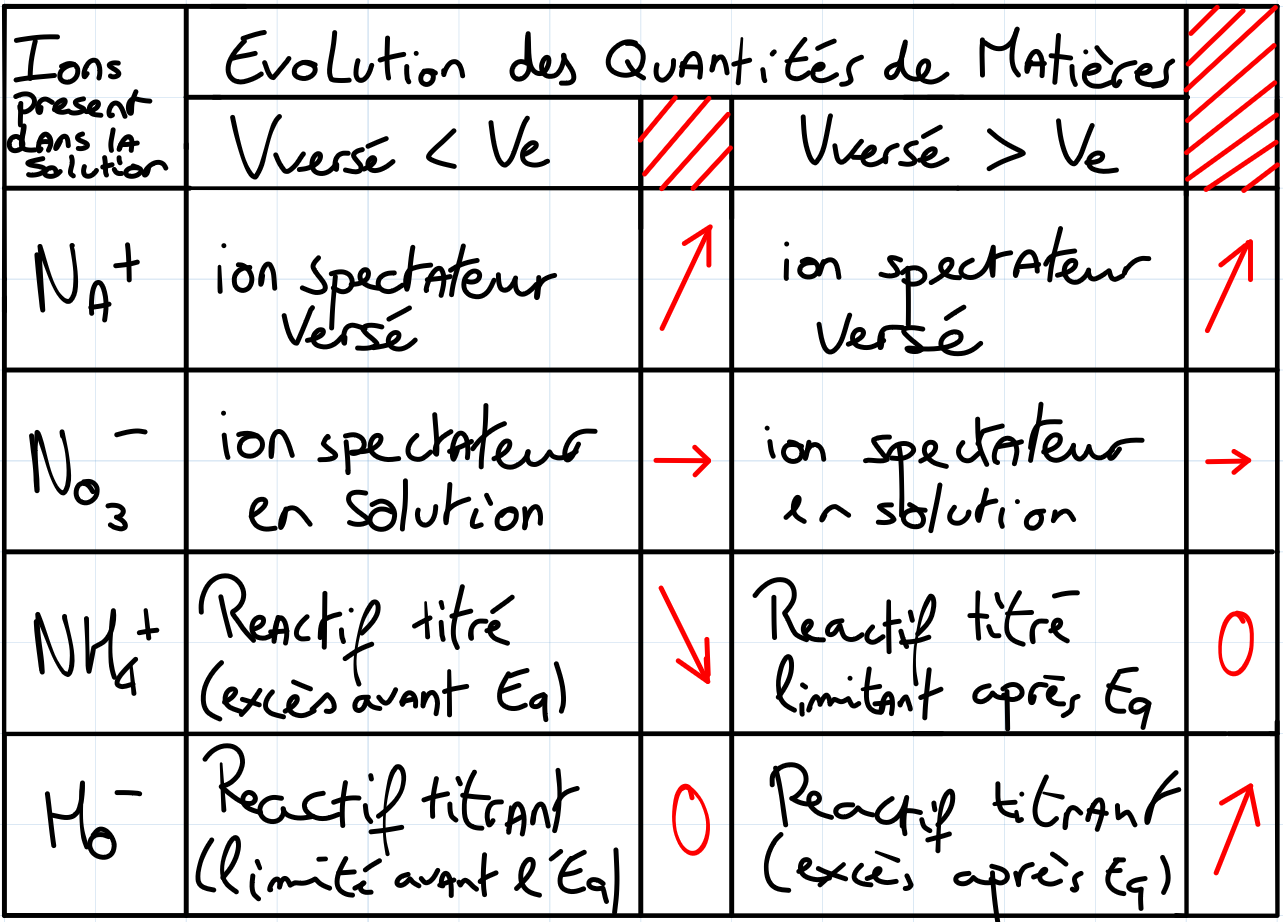 Ions
present
dans la
solution
Evolution des Quantités de Matières
Vversé < Ve
Vversé > Ve
Na+
ion spectateur
versé
↗
ion spectateur
versé
↗
NO3-
ion spectateur
en solution
→
ion spectateur
en solution
→
NH4+
Reactif titré
(excès avant Eq)
↘
Reactif titré
limitant après Eq
0
HO-
Reactif titrant
(limité avant l'Eq)
0
Reactif titrant
(excès après Eq)
↗